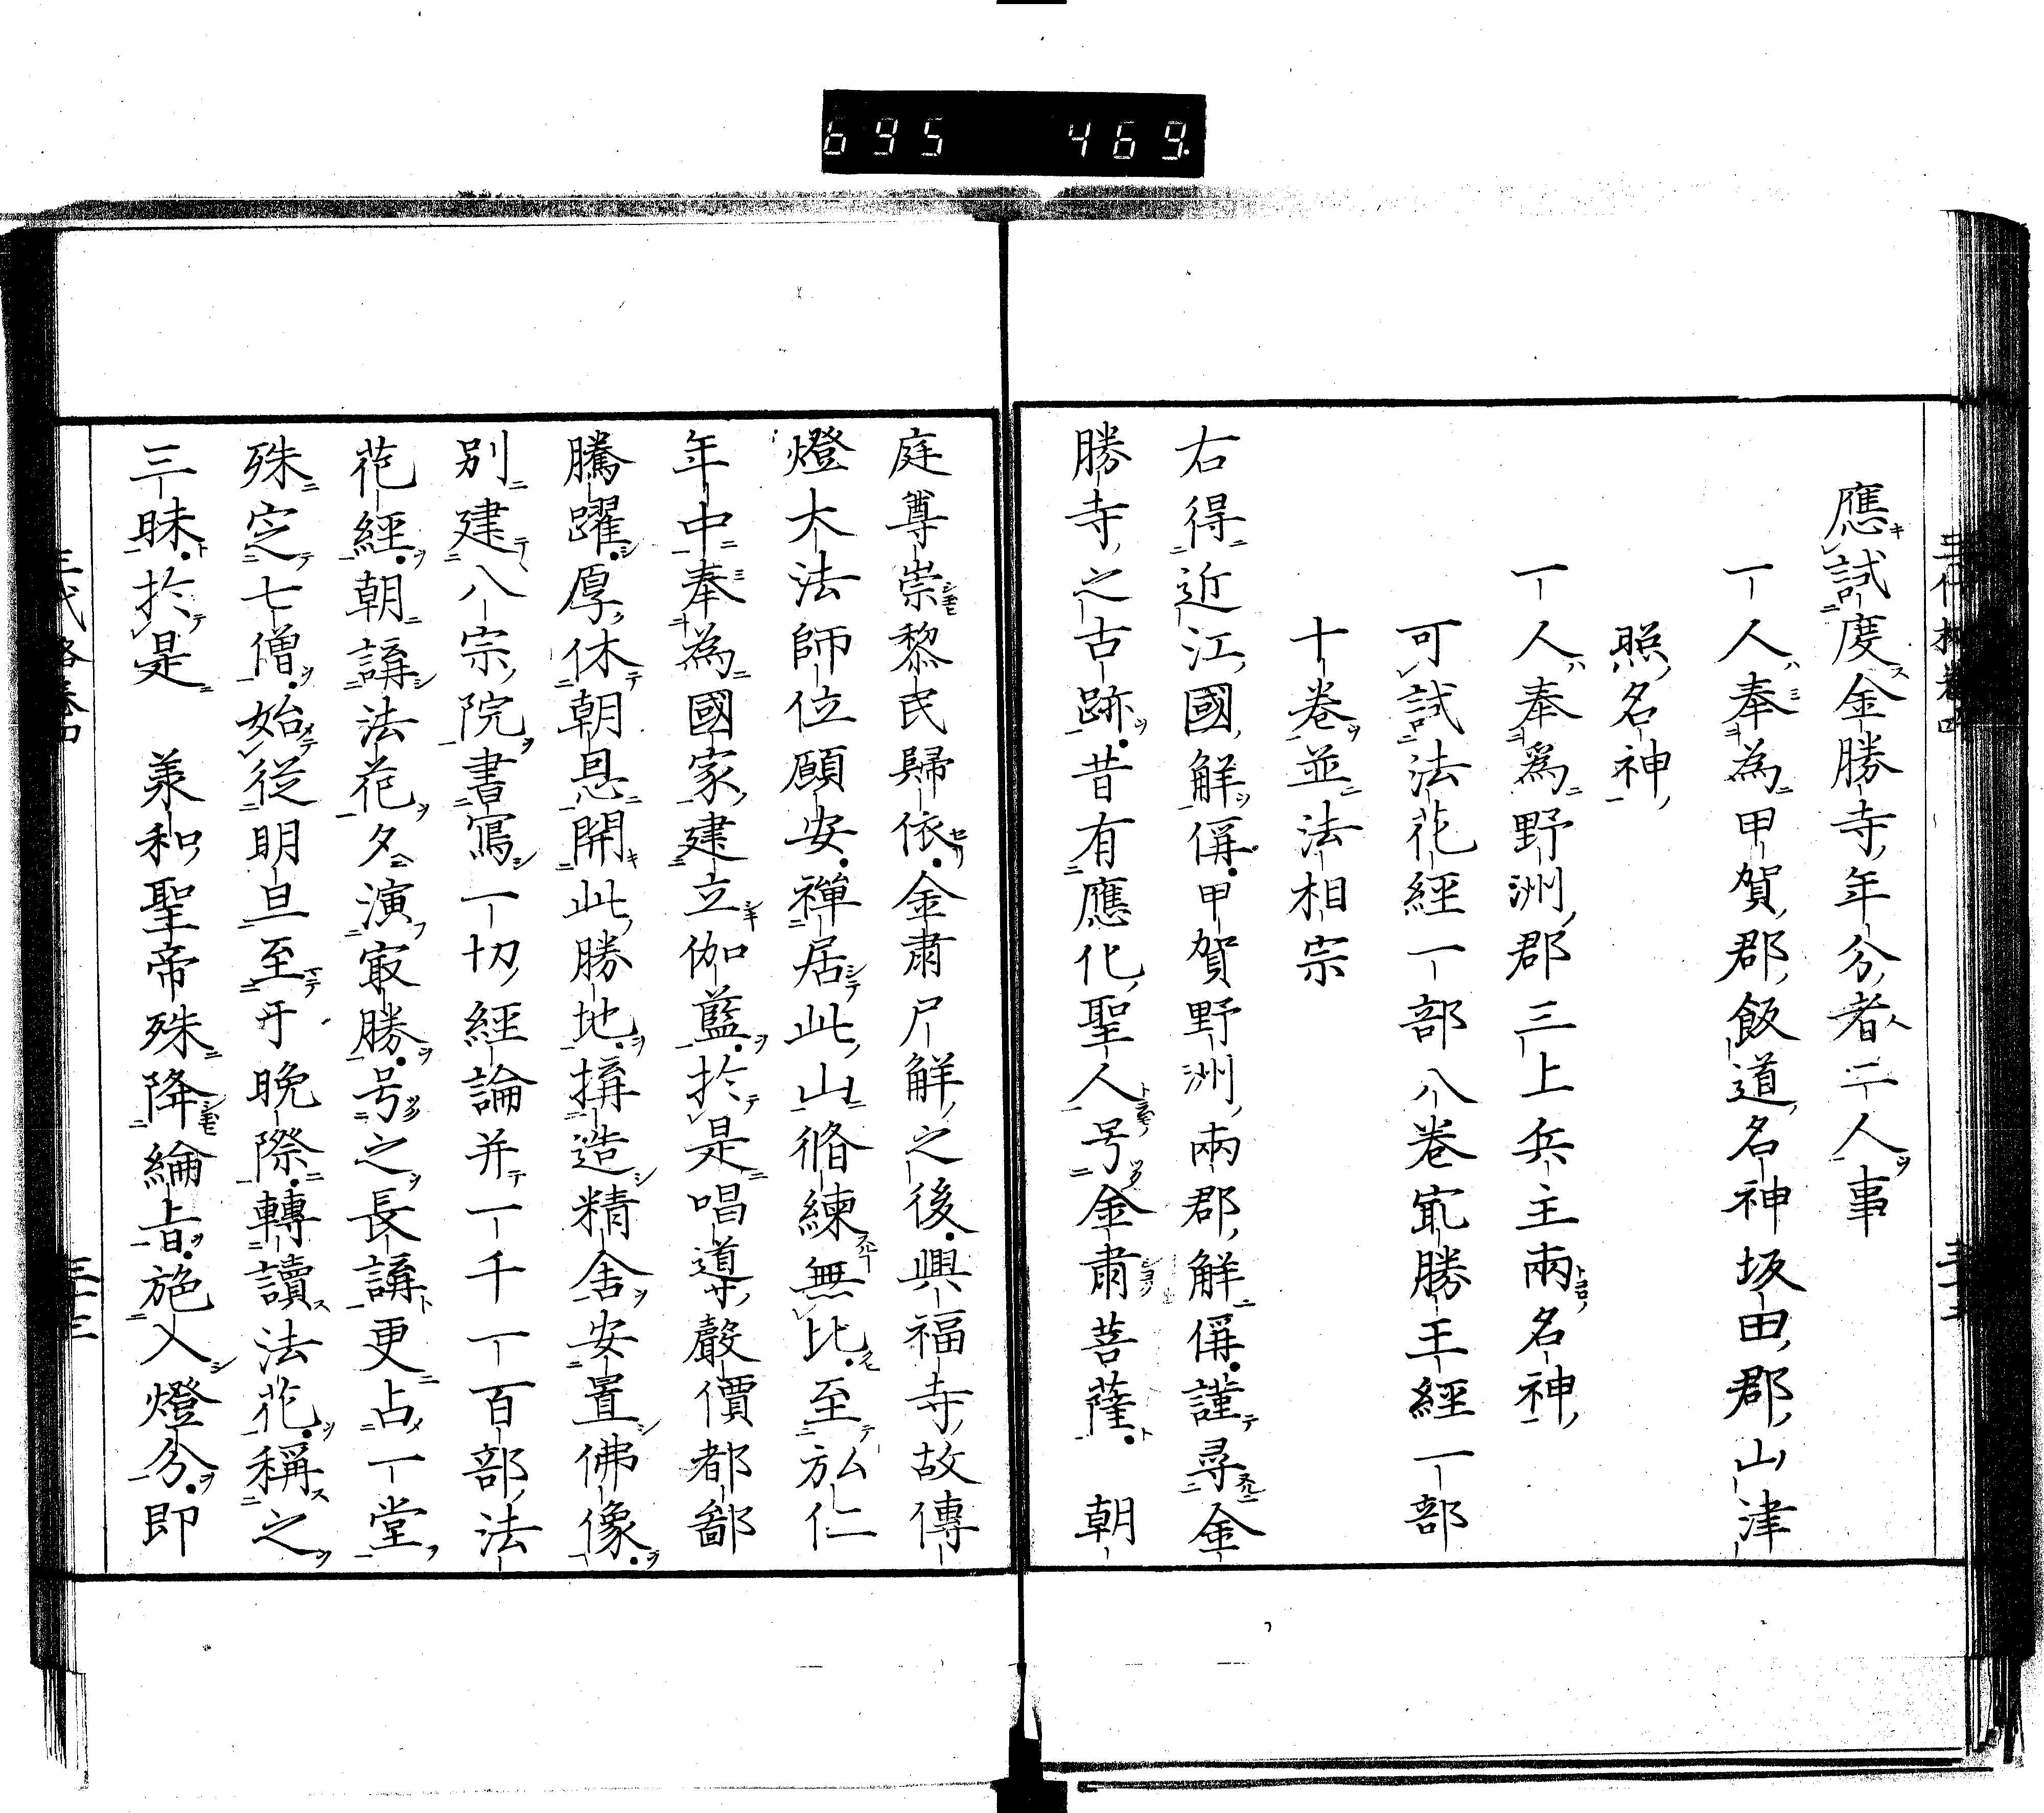 695 469
應試度金勝寺年分者二人事
一人奉為甲賀郡飯道名神坂田郡山津
照名神
一人奉爲野洲郡三上兵主兩名神
可試法花經一部八卷㝡勝王經一部
十卷並法相宗
右得近江國解偁甲賀野洲兩郡解偁謹尋金
勝寺之古跡昔有應化聖人号金肅菩薩 朝
庭尊崇黎民歸依金肅尸解之後興福寺故傳
燈大法師位願安禪居此山脩練無比至於仁
年中奉為國家建立伽藍於是唱導聲價都鄙
騰躍厚休朝恩開此勝地搆造精舍安置佛像
別建八宗院書寫一切經論并一千一百部法
花經朝講法花夕演㝡勝号之長講更占一堂
殊定七僧始從明旦至于晩際轉讀法花稱之
三昧於是 羕和聖帝殊降綸旨施入燈分即